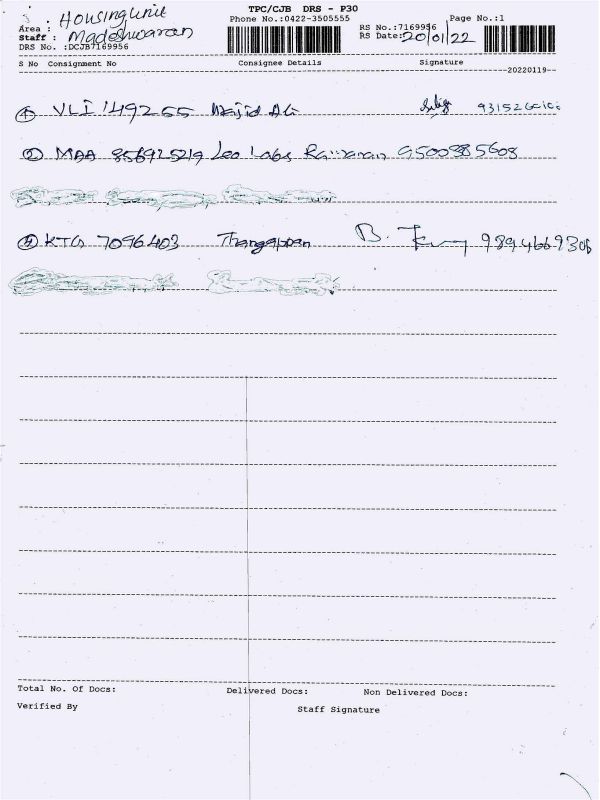 TPC/CJB DRS - P30
Phone No.:0422-3505555
Page No.:1
Area : Housing Unit
Staff : Madeshwaran
DRS No. :DCJB7169956
RS No.:7169956
RS Date: 20/01/22
S No Consignment No Consignee Details Signature
20220119
1 VLI 149255 Majid Ali
2 MAA 856925219 Leo Labs 9500985608
4 KTG 7096403 Thangappan B. 9894669306
Total No. Of Docs: Delivered Docs: Non Delivered Docs:
Verified By Staff Signature